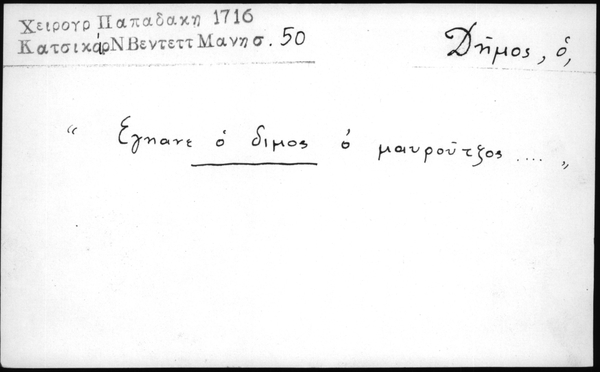 Χειρογρ Παπαδακη 1716
ΚατσικάρΝΒεντεττΜανησ. 50
Δῆμος, ὁ,
“ Ἐγηανε ὁ διμος ὁ μαυροῦτζος .... „